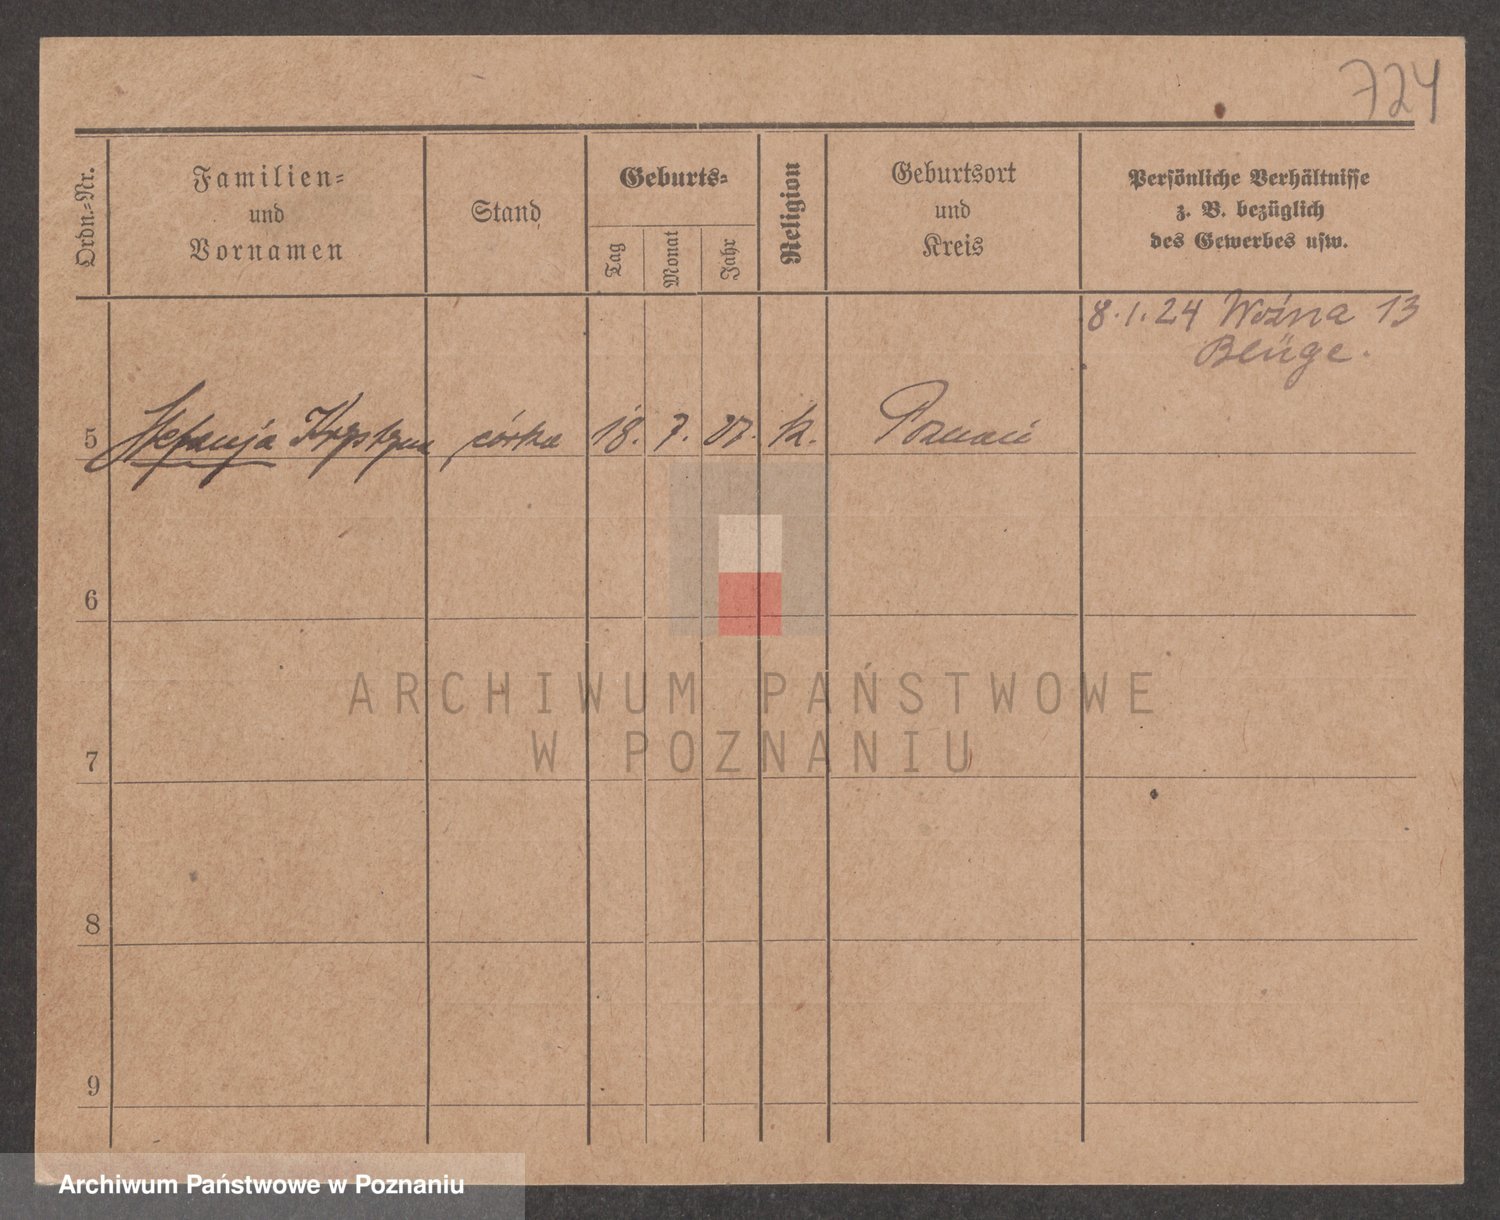 724
Ordn.-Nr.
Familien-
und
Vornamen
Stand
Geburts-
Tag
Monat
Jahr
Religion
Geburtsort
und
Kreis
Persönliche Verhältnisse
z. B. bezüglich
des Gewerbes usw.
8.1.24 Woźna 13
Blüge.
5 Stefanja Krystyna córka 18. 7. 07. k. Poznań
6
7
8
9
ARCHIWUM PAŃSTWOWE
W POZNANIU
Archiwum Państwowe w Poznaniu